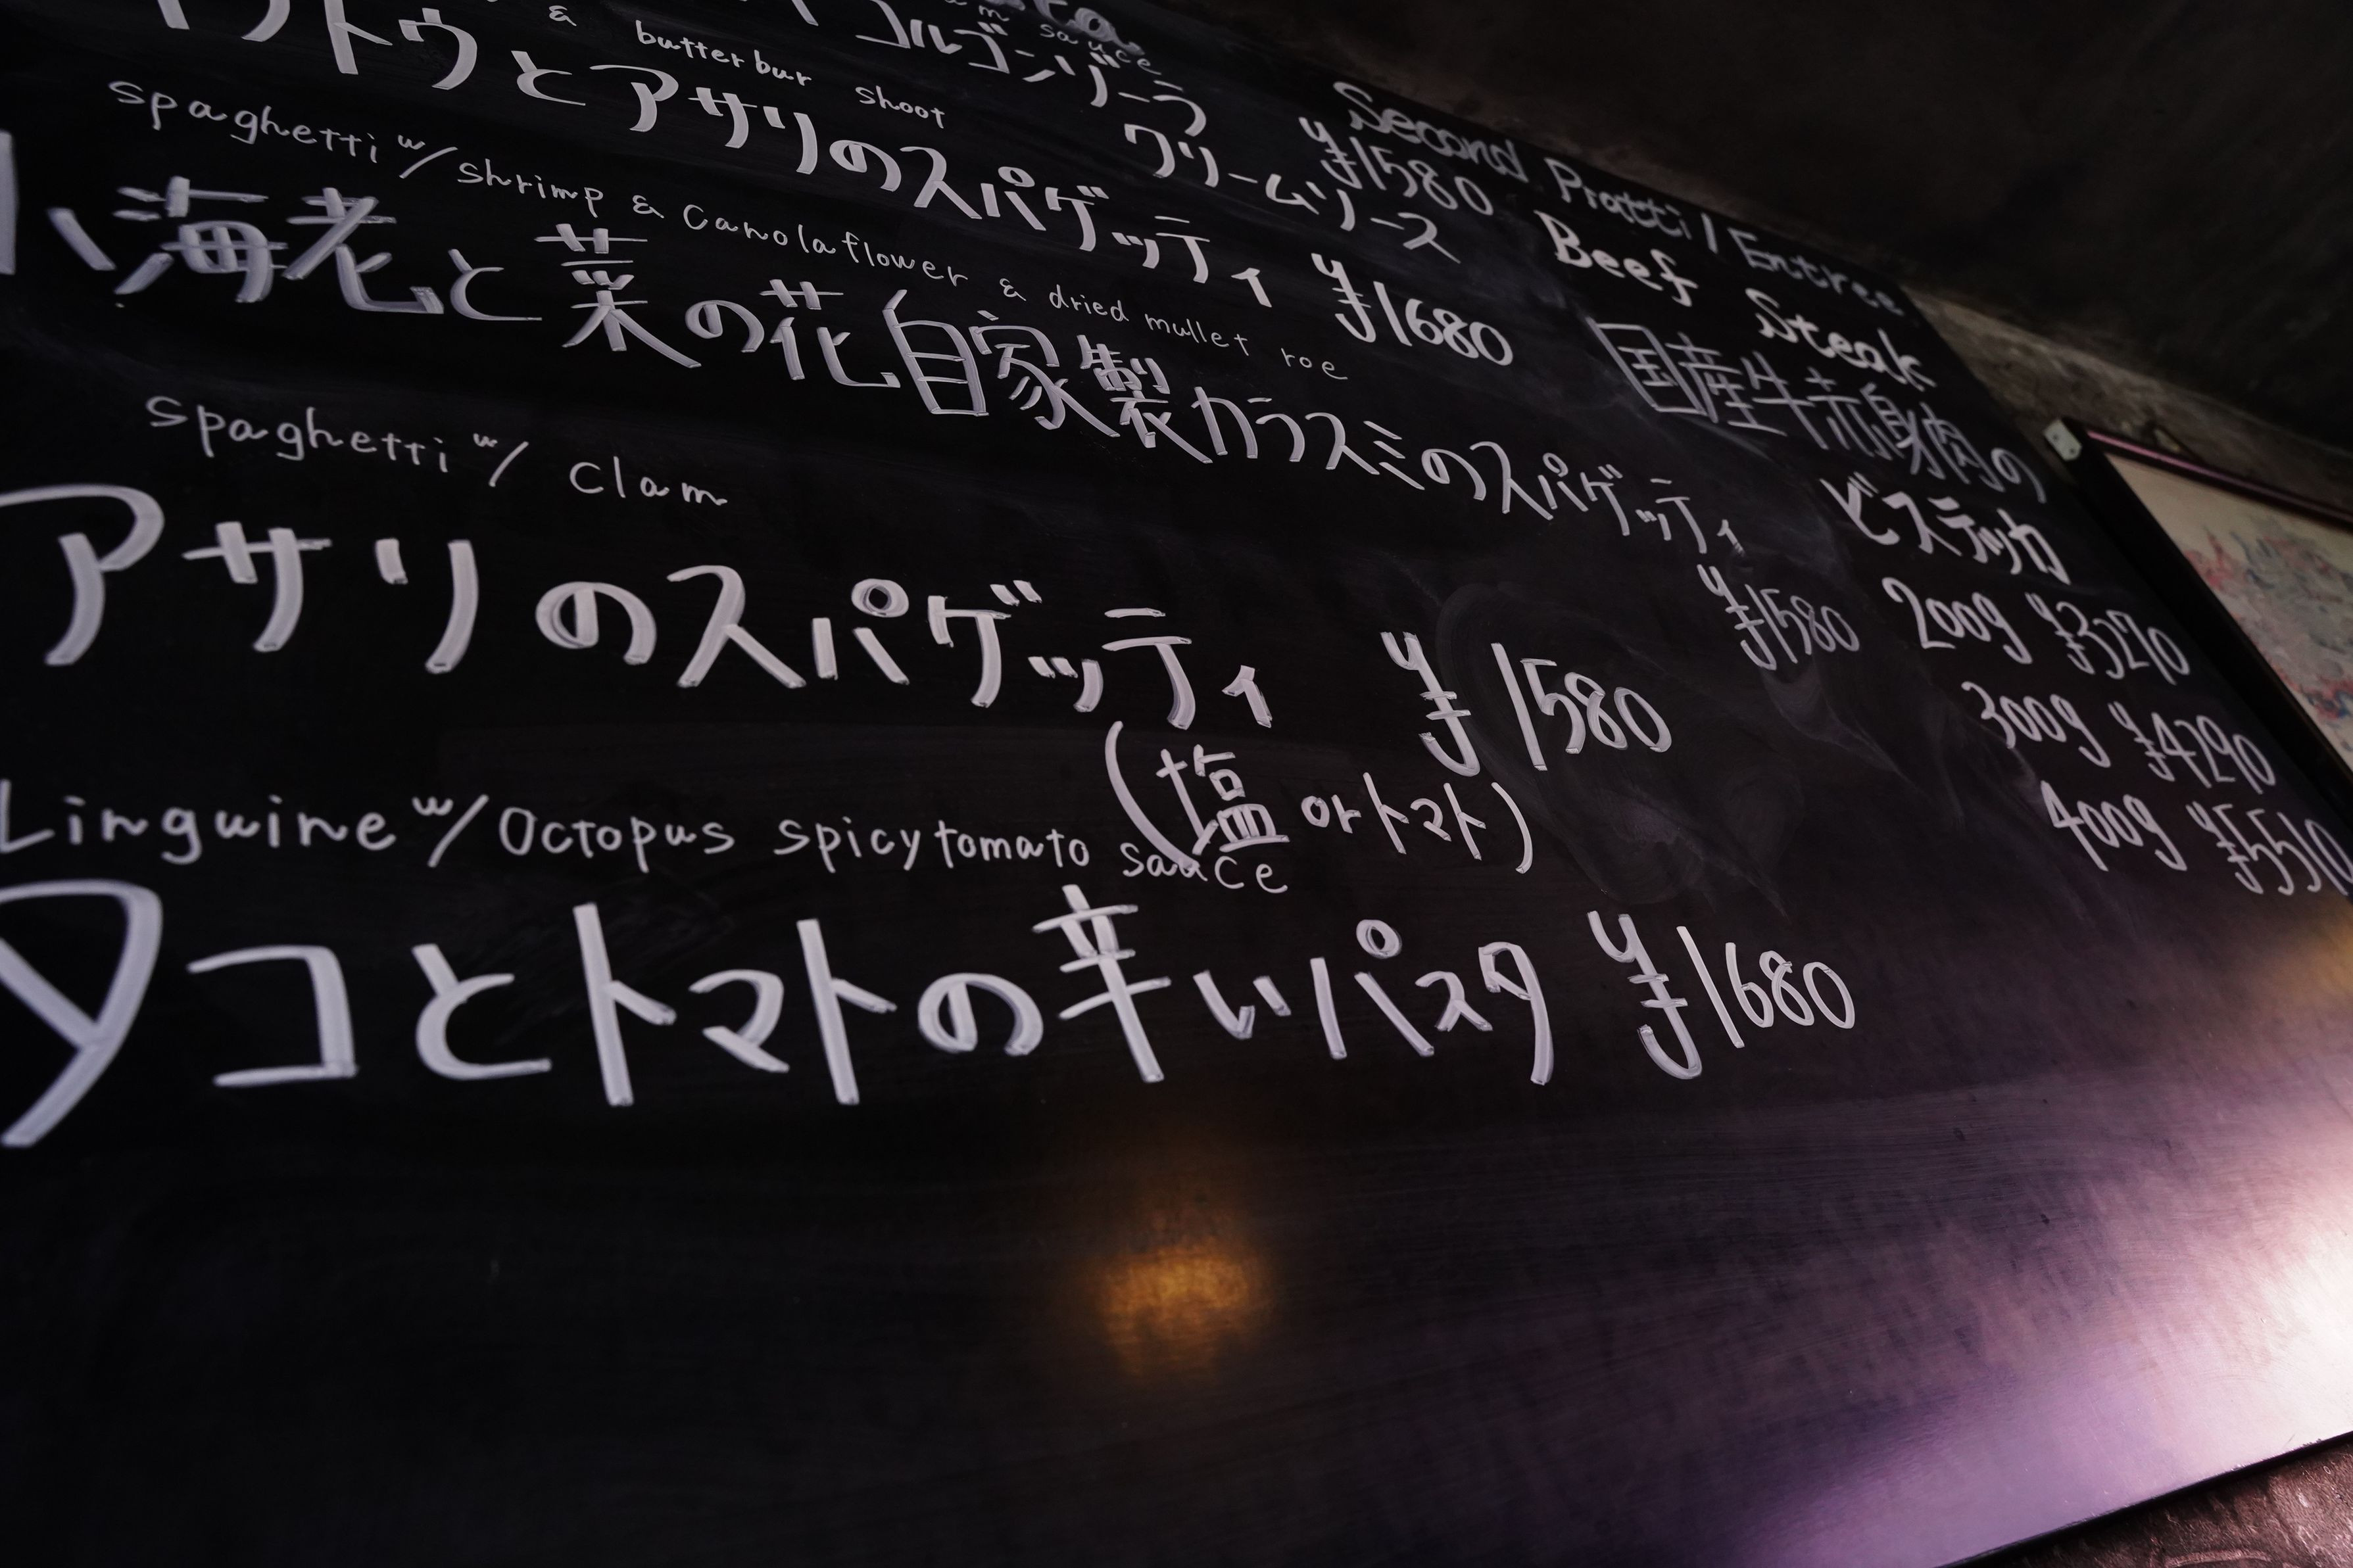 sauce
ゴルゴンゾーラ
クリームソース ¥1580
& butterbur shoot
トウとアサリのスパゲッティ ¥1680
spaghetti w/ shrimp & canola flower & dried mullet roe
小海老と菜の花自家製カラスミのスパゲッティ ¥1580
spaghetti w/ clam
アサリのスパゲッティ ¥1580
(塩 or トマト)
Linguine w/ Octopus spicy tomato sauce
タコとトマトの辛いパスタ ¥1680
Second Pratti / Entree
Beef Steak
国産牛赤身肉の
ビステッカ
200g ¥3270
300g ¥4290
400g ¥5510